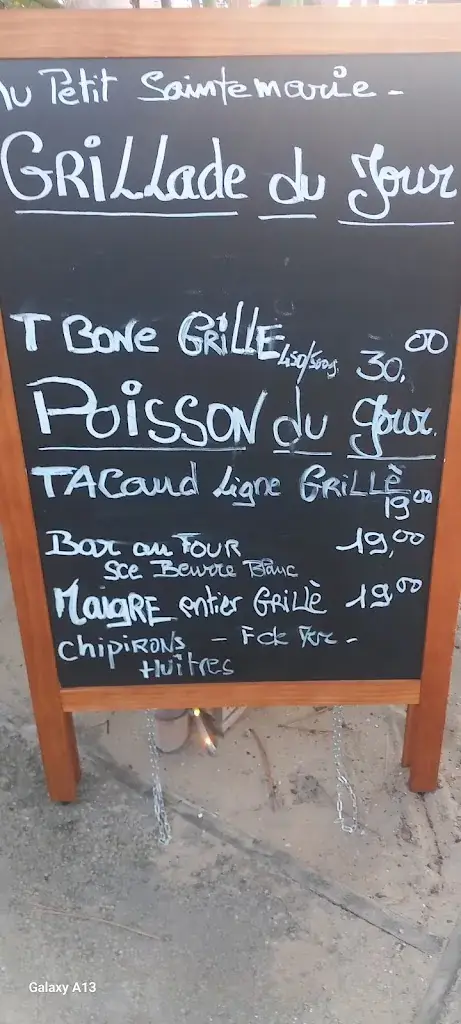 Au Petit Sainte marie -
GRILLade du Jour
T BONE GRILLE 450/500g 30,00
POISSON du Jour.
TACaud Ligne GRILLÈ
19,00
Bar au FOUR 19,00
Sce Beurre Blanc
MAIGRE entier GRILLÈ 19,00
CHIPIRONS -
HUÎTRES
Galaxy A13